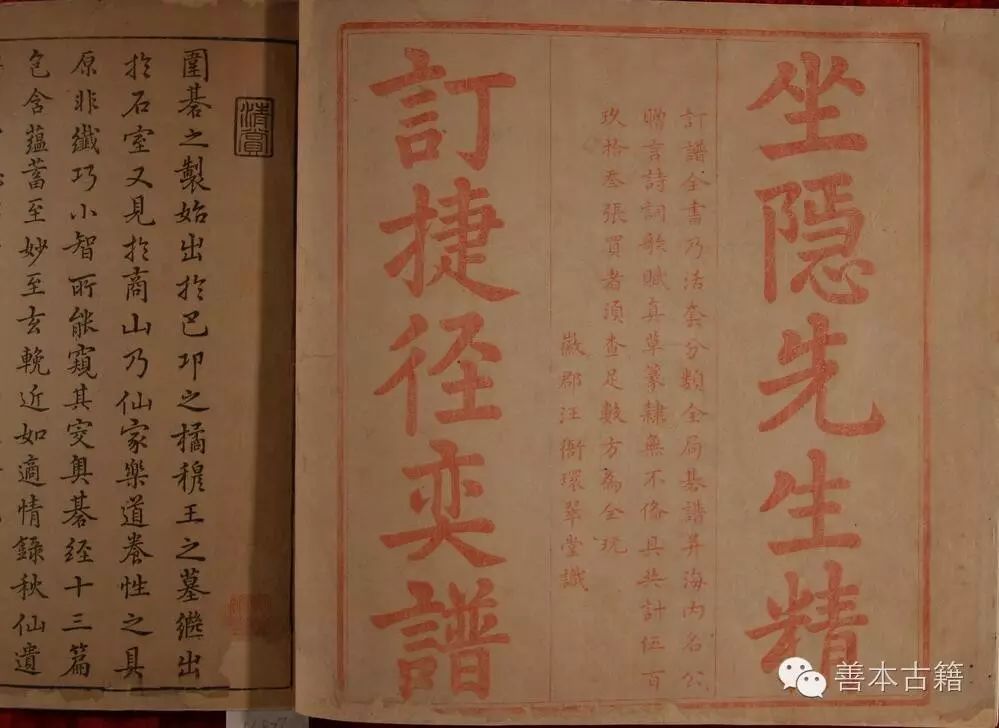 坐隐先生精
訂譜全書乃活套分類全局棊譜并海内名公
贈言詩詞歌賦真草篆隸無不俻具共計伍百
玖拾叁張買者須查足數方為全玩
徽郡汪衙環翠堂識
訂捷径奕譜
清賞
圍棊之製始出於巴邛之橘穆王之墓繼出
於石室又見於商山乃仙家樂道養性之具
原非纖巧小智所能窺其突奥棊經十三篇
包含蘊蓄至妙至玄輓近如適情錄秋仙遺
善本古籍